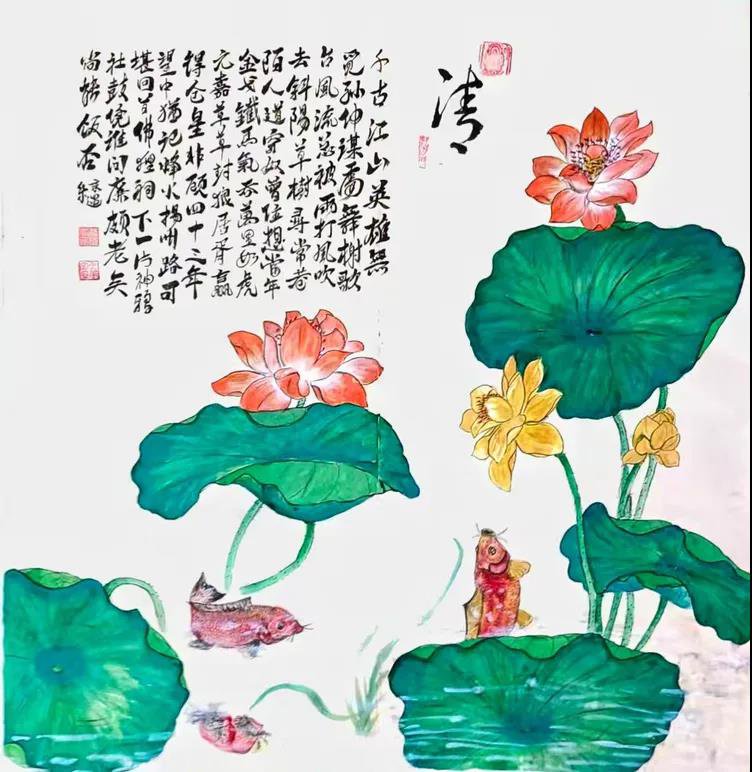 清
千古江山英雄無
覓孫仲謀處舞榭歌
台風流總被雨打風吹
去斜陽草樹尋常巷
陌人道寄奴曾住想當年
金戈鐵馬氣吞萬里如虎
元嘉草草封狼居胥贏
得倉皇北顧四十三年
望中猶記烽火揚州路可
堪回首佛狸祠下一片神鴉
社鼓憑誰問廉頗老矣
尚能飯否